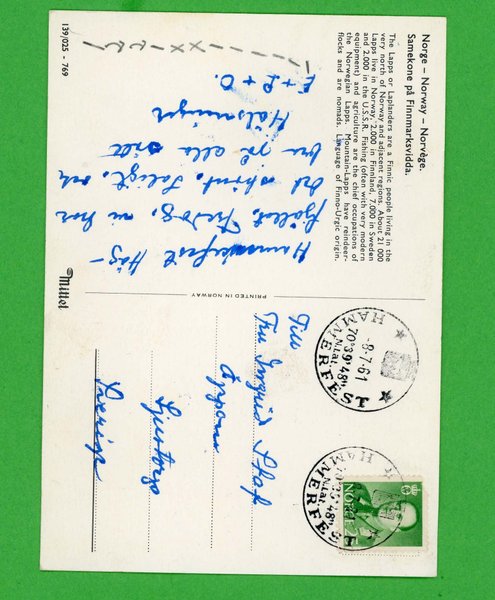 Norge – Norway – Norvège.
Samekone på Finnmarksvidda.
The Lapps or Laplanders are a Finnic people living in the
very north of Norway and adjacent regions. About 21 000
Lapps live in Norway, 2.000 in Finnland, 7.000 in Sweden
and 2.000 in the U.S.S.R. Fishing (often with very modern
equipment) and agriculture are the chief occupations of
the Norwegian Lapps. Mountain-Lapps have reindeer-
flocks and are nomads. Language of Finno-Urgic origin.
Hammerfest Hög-
fjället. Fredag,
Det skönt. Soligt, och
bra på alla sätt
Hälsningar
E + L + O.
139/025 - 769
Mittel
PRINTED IN NORWAY
HAMMERFEST
-8.7.61
70°39'48"
N.lat.
HAMMERFEST
70°39'48"
N.lat.
NORGE
Till
Fru Ingrid
Sverige